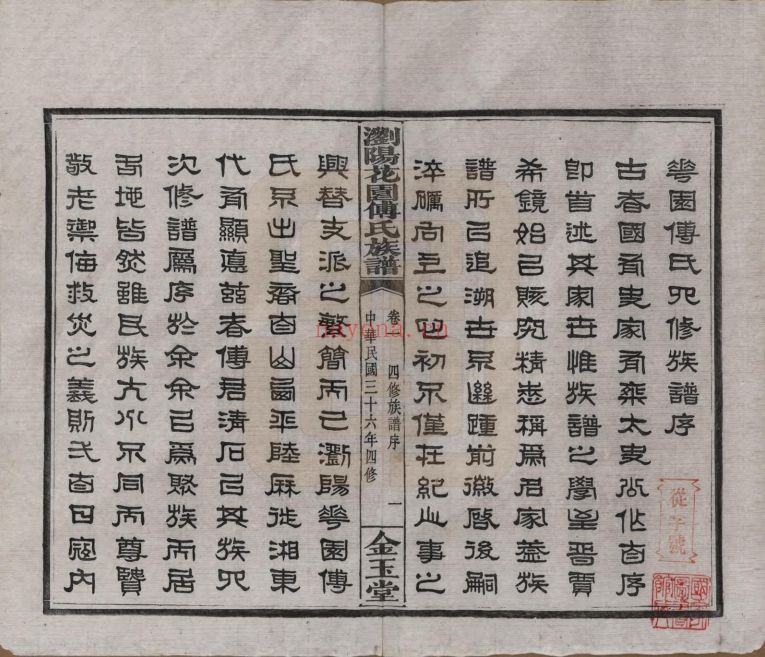 華園傅氏四修族譜序
古者國有史家有乘太史公作自序
即首述其家世惟族譜之學至晉賈
希鏡始已賅究精悉稱為名家蓋族
譜所以追溯世系繼踵前徽啟後嗣
淬礪向上之心初不僅在紀事之
瀏陽花園傅氏族譜
卷
四修族譜序
一
中華民國三十六年四修
金玉堂
興替支派之繁簡而已瀏陽華園傅
氏系出聖裔自山西平陸徙湘東
代有顯悳茲者傅君清石以其族四
次修譜屬序於余余以為聚族而居
各地皆然雖氏族大小不同而尊賢
敬老禦侮救災之義則弌自日寇內
從字號
nayona.cn